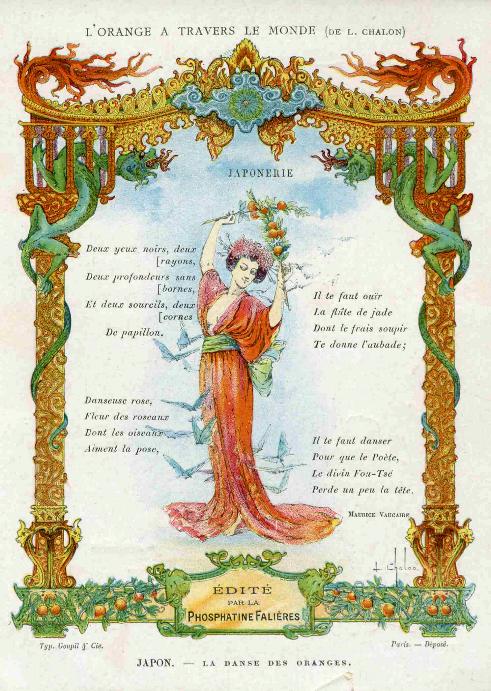 L'ORANGE A TRAVERS LE MONDE (DE L. CHALON)
JAPONERIE
Deux yeux noirs, deux
[rayons,
Deux profondeurs sans
[bornes,
Et deux sourcils, deux
[cornes
De papillon.
Danseuse rose,
Fleur des roseaux
Dont les oiseaux
Aiment la pose,
Il te faut ouïr
La flûte de jade
Dont le frais soupir
Te donne l'aubade;
Il te faut danser
Pour que le Poète,
Le divin Fou-Tsé
Perde un peu la tête.
MAURICE VAUCAIRE
L. Chalon
ÉDITÉ
PAR LA
PHOSPHATINE FALIÈRES
Typ. Goupil & Cie.
Paris. — Déposé.
JAPON. — LA DANSE DES ORANGES.